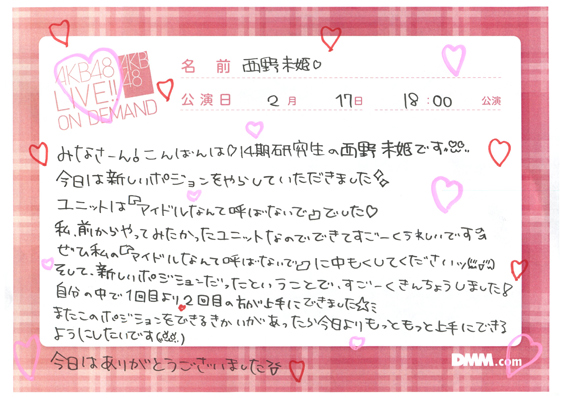 AKB48
LIVE!!
ON DEMAND
AKB
48
名前 西野未姫♡
公演日 2月 17日 18:00 公演
みなさーん♪こんばんは♡14期研究生の西野未姫です
今日は新しいポジションをやらしていただきました
ユニットは『アイドルなんて呼ばないで』でした♡
私、前からやってみたかったユニットなのでできてすごーくうれしいです
ぜひ私の『アイドルなんて呼ばないで』に中もくしてくださいッ
そして、新しいポジションだったということで、すごーくきんちょうしました
自分の中で1回目より2回目の方が上手にできました☆ミ
またこのポジションをできるきかいがあったら今日よりもっともっと上手にできる
ようにしたいです
今日はありがとうございました
DMM.com